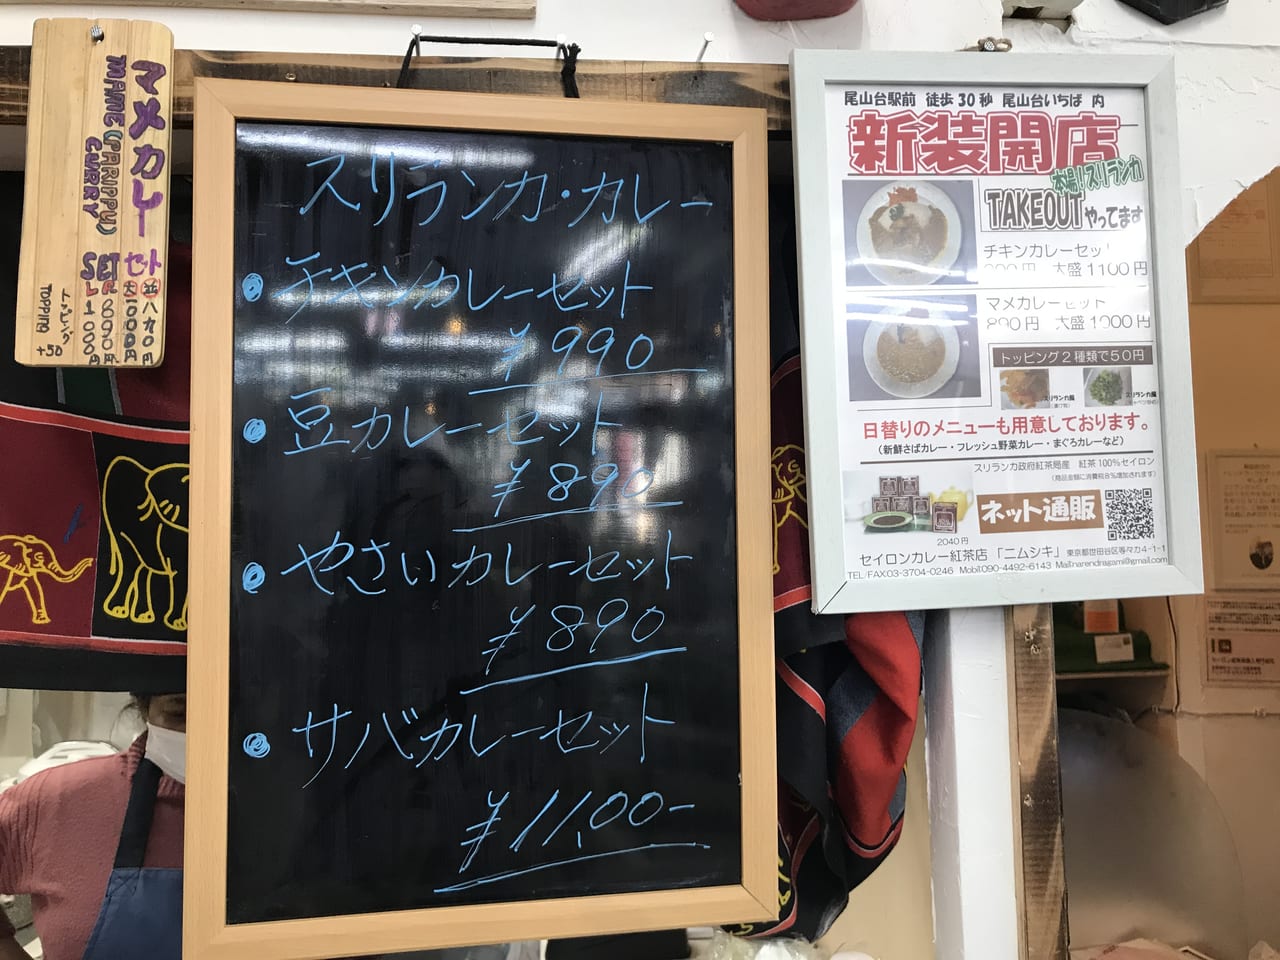 マメカレー セット
MAME(PARIPPU)
CURRY SET
並 八九〇円
大 1000円
R 890円
L 1000円
トッピング
TOPPING +50
スリランカ・カレー
・チキンカレーセット
¥990
・豆カレーセット
¥890
・やさいカレーセット
¥890
・サバカレーセット
¥11,00-
尾山台駅前 徒歩30秒 尾山台いちば 内
新装開店
本場!スリランカ
TAKEOUTやってます
チキンカレーセット
大盛1100円
マメカレーセット
890円 大盛1000円
トッピング2種類で50円
スリランカ風
スリランカ風
日替りのメニューも用意しております。
(新鮮さばカレー・フレッシュ野菜カレー・まぐろカレーなど)
スリランカ政府紅茶局産 紅茶100%セイロン
(商品金額に消費税8%増加されます)
ネット通販
2040円
セイロンカレー紅茶店 「ニムシキ」 東京都世田谷区等々力4-1-1
TEL/FAX:03-3704-0246 Mobil:090-4492-6143 Mail:narendragami@gmail.com